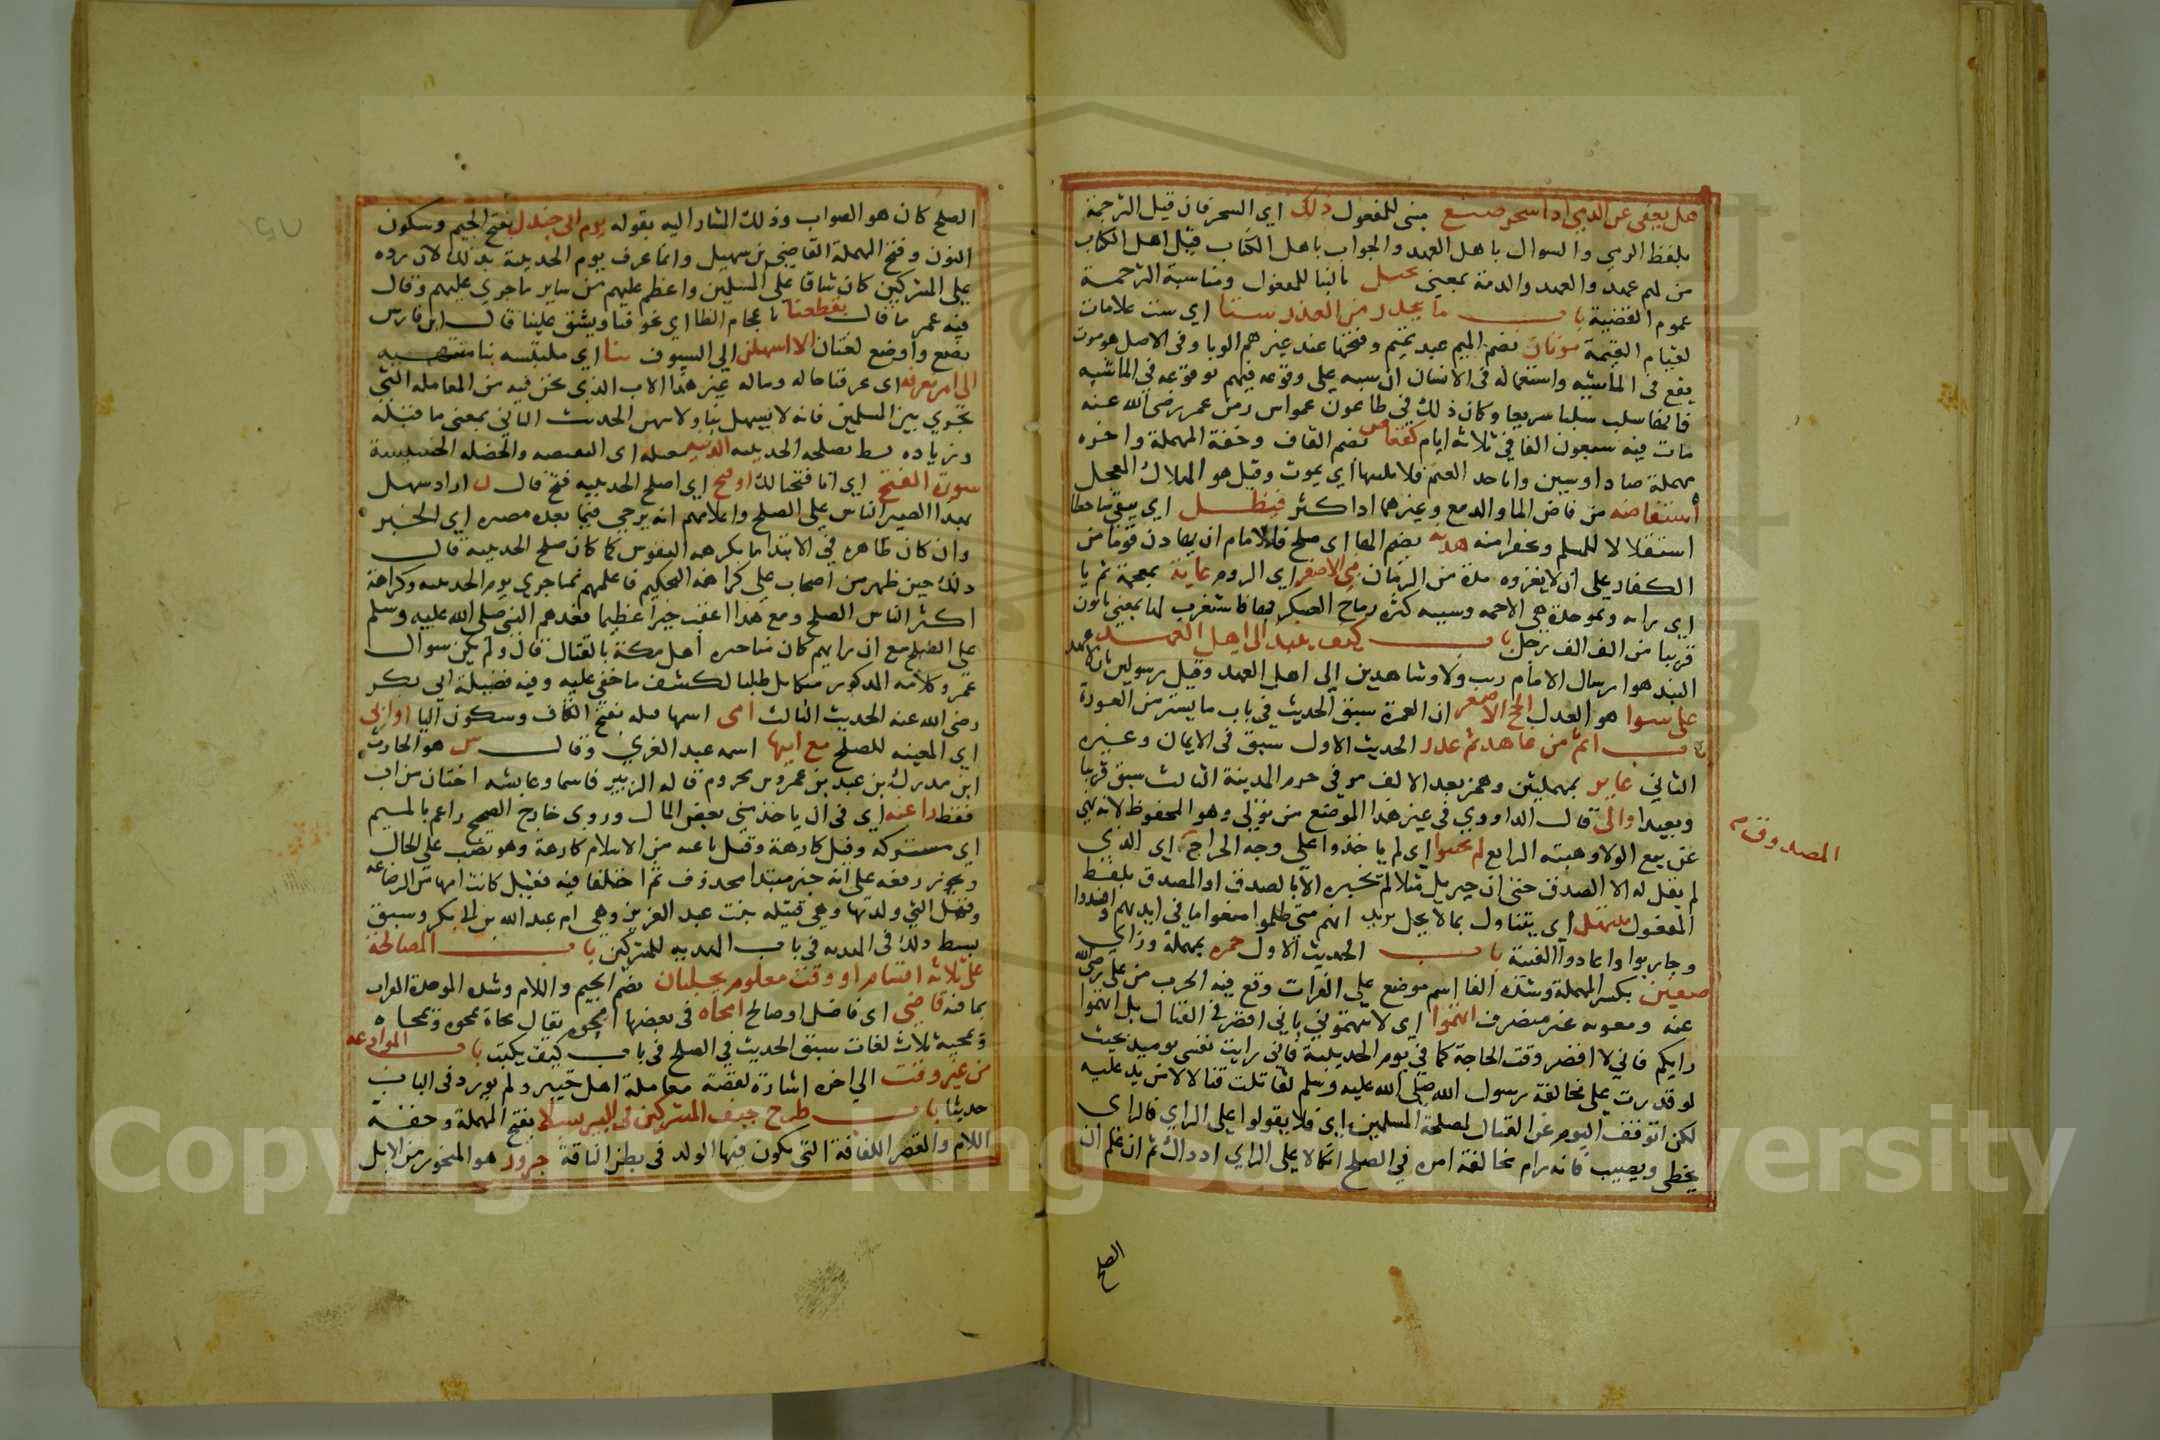 هل يعفى عن الذمي اذا سحر صنع مبنى للمفعول ذلك اي السحر فان قيل الترجمة
بلفظ الذمي والسوال باهل العهد والجواب باهل الكتاب قيل اهل الكتاب
من لهم عهد والعهد والذمة بمعنى يخيل بالبنا للمفعول ومناسبة الترجمة
عموم القضية باب ما يحذر من الغدر ستا اي ست علامات
لقيام القيمة موتان بضم الميم عند تميم وفتحها عند غيرهم الوبا وفي الاصل هو موت
يقع في الماشيه واستعماله في الانسان
سريعا وكان ذلك في طاعون عمواس زمن عمر رضي الله عنه
مات فيه سبعون الفا في ثلاثة ايام كقعاص بضم القاف وخفة المهملة واخره
مهملة صاد او سين داء ياخذ الغنم فلا يلبثها اي يموت وقيل هو الهلاك المعجل
استفاضه من فاض الما والدمع وغيرهما اذا كثر فيظل اي يبقى ساخطا
استقلالا للمبلغ وتحقيرا منه هدنه بضم الها اي صلح
الكفار على ان لا يغزوه مدة من الزمان بني الاصفر اي الروم غاية بمعجمة ثم يا
اي راية وبموحدة هي الاجمه وسببه كثرة رماح العسكر
قريبا من الف الف رجل باب كيف ينبذ الى اهل العهد
النبذ هو ارسال الامام الى اهل العهد وقيل
على سوا هو العدل الحج الاصغر ان العمرة سبق الحديث في باب ما يستر من العورة
باب اثم من عاهد ثم غدر الحديث الاول سبق في الايمان وغيره
الثاني عاير بمهملتين وهمز بعد الالف مر في حرم المدينة الثالث سبق قريبا
وبعيدا والى قال الداودي في غير هذا الموضع من تولى وهو المحفوظ لانه نهي
عن بيع الولا وهبته الرابع لم تجتبوا اي لم ياخذوا على وجه الخراج اي الذي
لم يقل له الا الصدق حتى ان جبريل مثلا لم يخبره الا بالصدق او المصدق بلفظ
المفعول تنتهك اي يتناول بما لا يحل يريد انهم متى ظلموا منعوا ما في ايديهم
وحاربوا واعادوا الفتنة باب الحديث الاول حمزه بمهملة وزاي
صفين بكسر المهملة وشدة الفا اسم موضع على الفرات وقع فيه الحرب من علي رضي الله
عنه ومعويه غير منصرف اتهموا اي لا تتهموني باني اقصر في القتال بل اتهموا
رايكم فاني لا اقصر وقت الحاجة كما في يوم الحديبية فاني رايت نفسي يوميذ بحيث
لو قدرت على مخالفة رسول الله صلى الله عليه وسلم لقاتلت قتالا لا مزيد عليه
لكن اتوقف اليوم عن القتال لمصلحة المسلمين اي فلا يقولوا على الراي فالراي
يخطي ويصيب فانه رام مخالفة امره في الصلح اتكالا على الراي اذ ذاك ثم ان علم ان
المصدوق م
الصلح
الصلح كان هو الصواب وذلك المشار اليه بقوله يوم ابي جندل بفتح الجيم وسكون
النون وفتح المهملة القاضي بن سهيل وانما عرف يوم الحديبية بذلك لان رده
على المشركين كان شاقا على المسلمين واعظم عليهم من ساير ما جرى عليهم وقال
فيه عمر ما قال يقطعنا باعجام الظا اي يخوفنا ويشق علينا قال ابن فارس
يفظع وأوفظع لغتان الا اسهلن اي السيوف بنا اي ملتبسه بنا منتهيه
الى امر نعرفه اي عرفنا حاله وماله غير هذا الامر الذي نحن فيه من المعاملة التي
تجري بين المسلمين فانه لا يسهل بنا الحديث الثاني بمعنى ما قبله
وزياده
سورة الفتح اي انا فتحنا لك او فتح اي اصلح الحديبيه فتح قال ن اراد سهل
بهذا الصبر الناس على الصلح واعلامهم انه يرجى فيما بعده مصيره اي الخير
وان كان ظاهره في الابتدا ما تكرهه النفوس كما كان صلح الحديبيه قال
ذلك حين ظهر من اصحاب علي كراهة التحكيم فاعلمهم بما جرى يوم الحديبيه وكراهة
اكثر الناس الصلح ومع هذا اعقب خيرا عظيما فقدهم النبي صلى الله عليه وسلم
على الصلح مع ان رايهم كان مناجزة اهل مكة بالقتال قال ولم يكن سوال
عمر وكلامه المذكور شكا بل طلبا لكشف ما خفي عليه وفيه فضيلة ابي بكر
رضي الله عنه الحديث الثالث امي اسمها قيله بفتح القاف وسكون اليا
اي المعينه للصلح مع ابيها اسمه عبد العزى وقال س هو الحارث
ابن مدرك بن عبيد بن عمرو بن مخزوم قاله الزبير فاسما وعايشه اختان من اب
فقط راغبه اي في ان ياخذ مني بعض المال وروي خارج الصحيح راغم بالميم
اي مشركه وقيل كارهة وقيل راغبه من الاسلام كارهة وهو نصب على الحال
ويجوز رفعه على انه خبر مبتدا محذوف ثم اختلفوا فيه فقيل كانت امها من الرضاعه
وقيل التي ولدتها وهي قتيله بنت عبد العزيز وهي ام عبد الله بن ابي بكر وسبق
بسط ذلك في الهديه في باب الهديه للمشركين باب المصالحة
على ثلاثة ايام او وقت معلوم بجلبان بضم الجيم واللام وشدة الموحدة القراب
بما فيه قاضى اي فاصل او صالح امحاه في بعضها امحوه يقال محاه يمحوه ويمحاه
ويمحيه ثلاث لغات سبق الحديث في الصلح في باب كيف يكتب باب الموادعه
من غير وقت الى اخره اشارة لقصة معاملة اهل خيبر ولم يورد في الباب
حديثا باب طرح جيف المشركين في البير بسلا بفتح المهملة وخفة
اللام والقصر اللفافة التي يكون فيها الولد في بطن الناقة جزور هو المنحور من الابل
Copyright © King Saud University